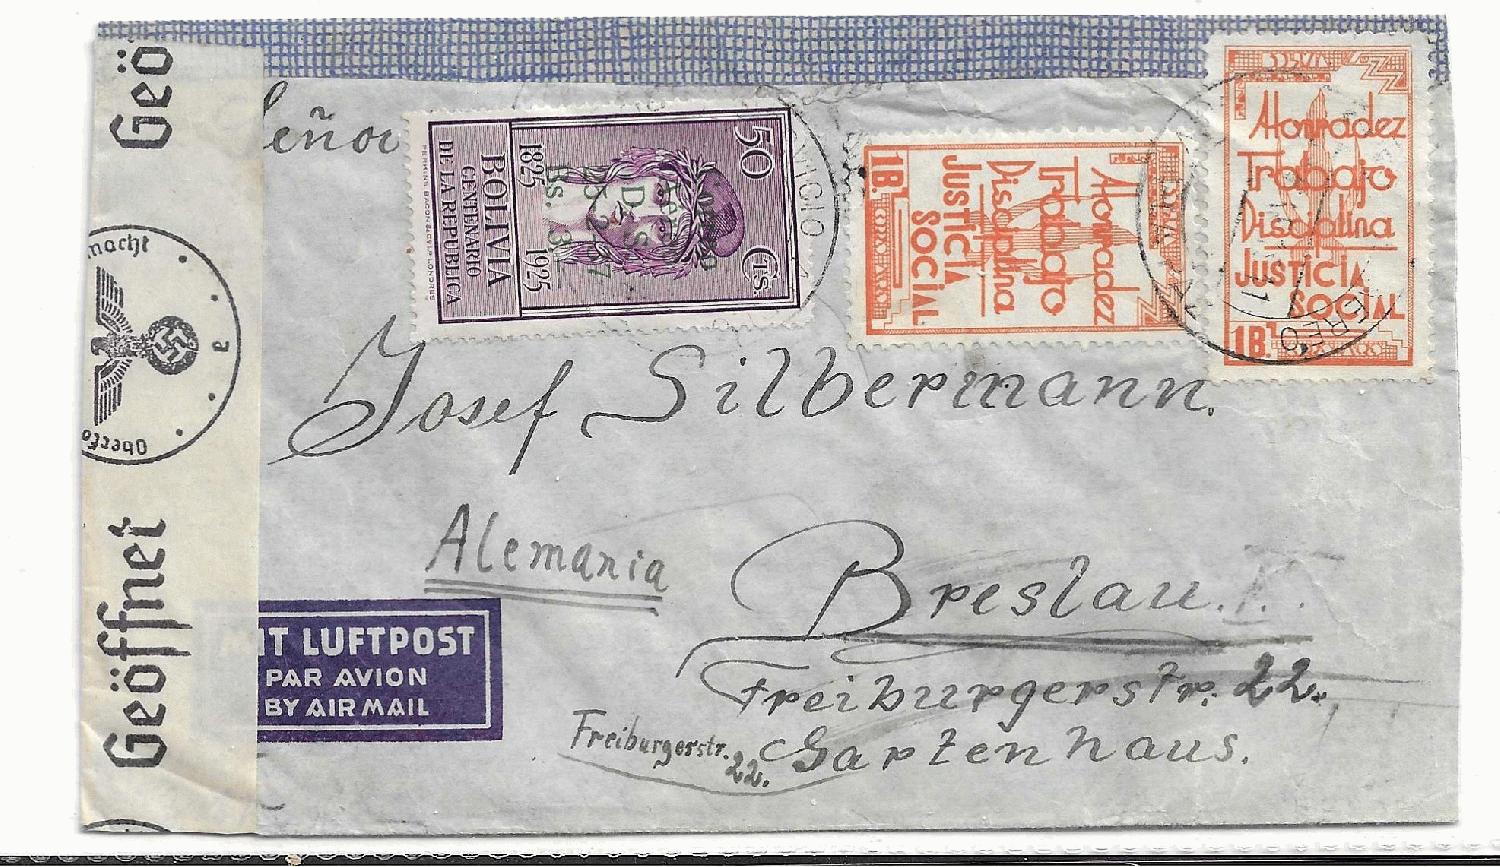 Geö
Geöffnet
macht
a
Oberko
Señor
50 Cts.
BOLIVIA
1825 1925
CENTENARIO
DE LA REPUBLICA
D. S.
25-2-37
Bs. 3
1B.
Honradez
Trabajo
Disciplina
JUSTICIA
SOCIAL
Honradez
Trabajo
Disciplina
JUSTICIA
SOCIAL
1B.
VICIO
Josef Silbermann.
Alemania
Breslau.
Freiburgerstr. 22.
Gartenhaus.
Freiburgerstr.
22.
MIT LUFTPOST
PAR AVION
BY AIR MAIL